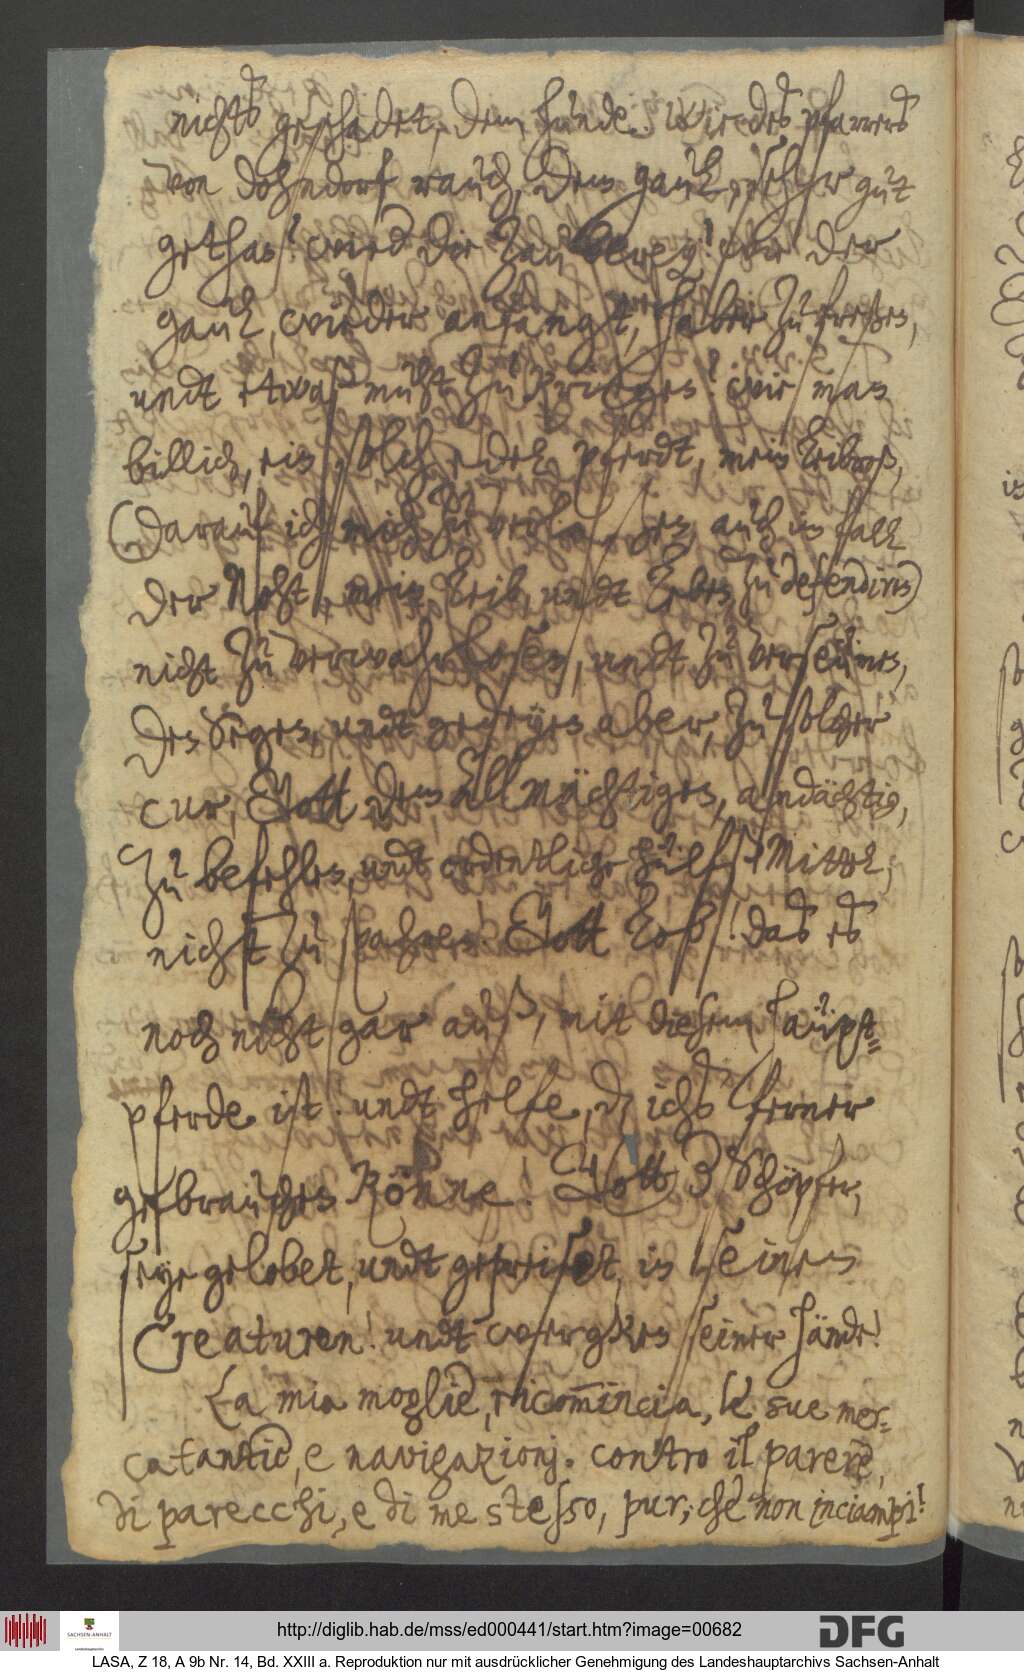 nichts geschadet, dem Hunde. Wie des pfarrers
von Dohndorf rauch, dem gaul, sehr gut
gethan! wird die Zauberey! wie der
gaul, wieder anfängt, haber zu freßen,
undt etwaß muht zu kriegen! wir man
billich, ein solch edel pferdt, mein Leibroß,
(darauf ich mich zu verlaßen, auch im fall
der Noht, mein Leib, undt Leben zu defendiren)
nicht zu verwahrlosen, undt zu verseumen,
den Segen, undt gedeyen aber, zu solcher
cur, Gott dem Allmächtigen, andächtig,
zu befehlen, undt ordentliche hülfs Mittel,
nicht zu spahren! Gott Lob! das es
noch nicht gar auß, mit diesem Häupt-
pferde ist. undt helfe, daß ichs ferner
gebrauchen Könne! Gott der Schöpfer,
seye gelobet, undt gepreiset, in seinen
Creaturen! undt wergken seiner Hände!
La mia moglie, ricomincia, le sue mer-
catantie, e navigazionj. contro il parere,
di parecchi, e di me stesso, pur; che non inciampi!
http://diglib.hab.de/mss/ed000441/start.htm?image=00682
SACHSEN-ANHALT
DFG
LASA, Z 18, A 9b Nr. 14, Bd. XXIII a. Reproduktion nur mit ausdrücklicher Genehmigung des Landeshauptarchivs Sachsen-Anhalt